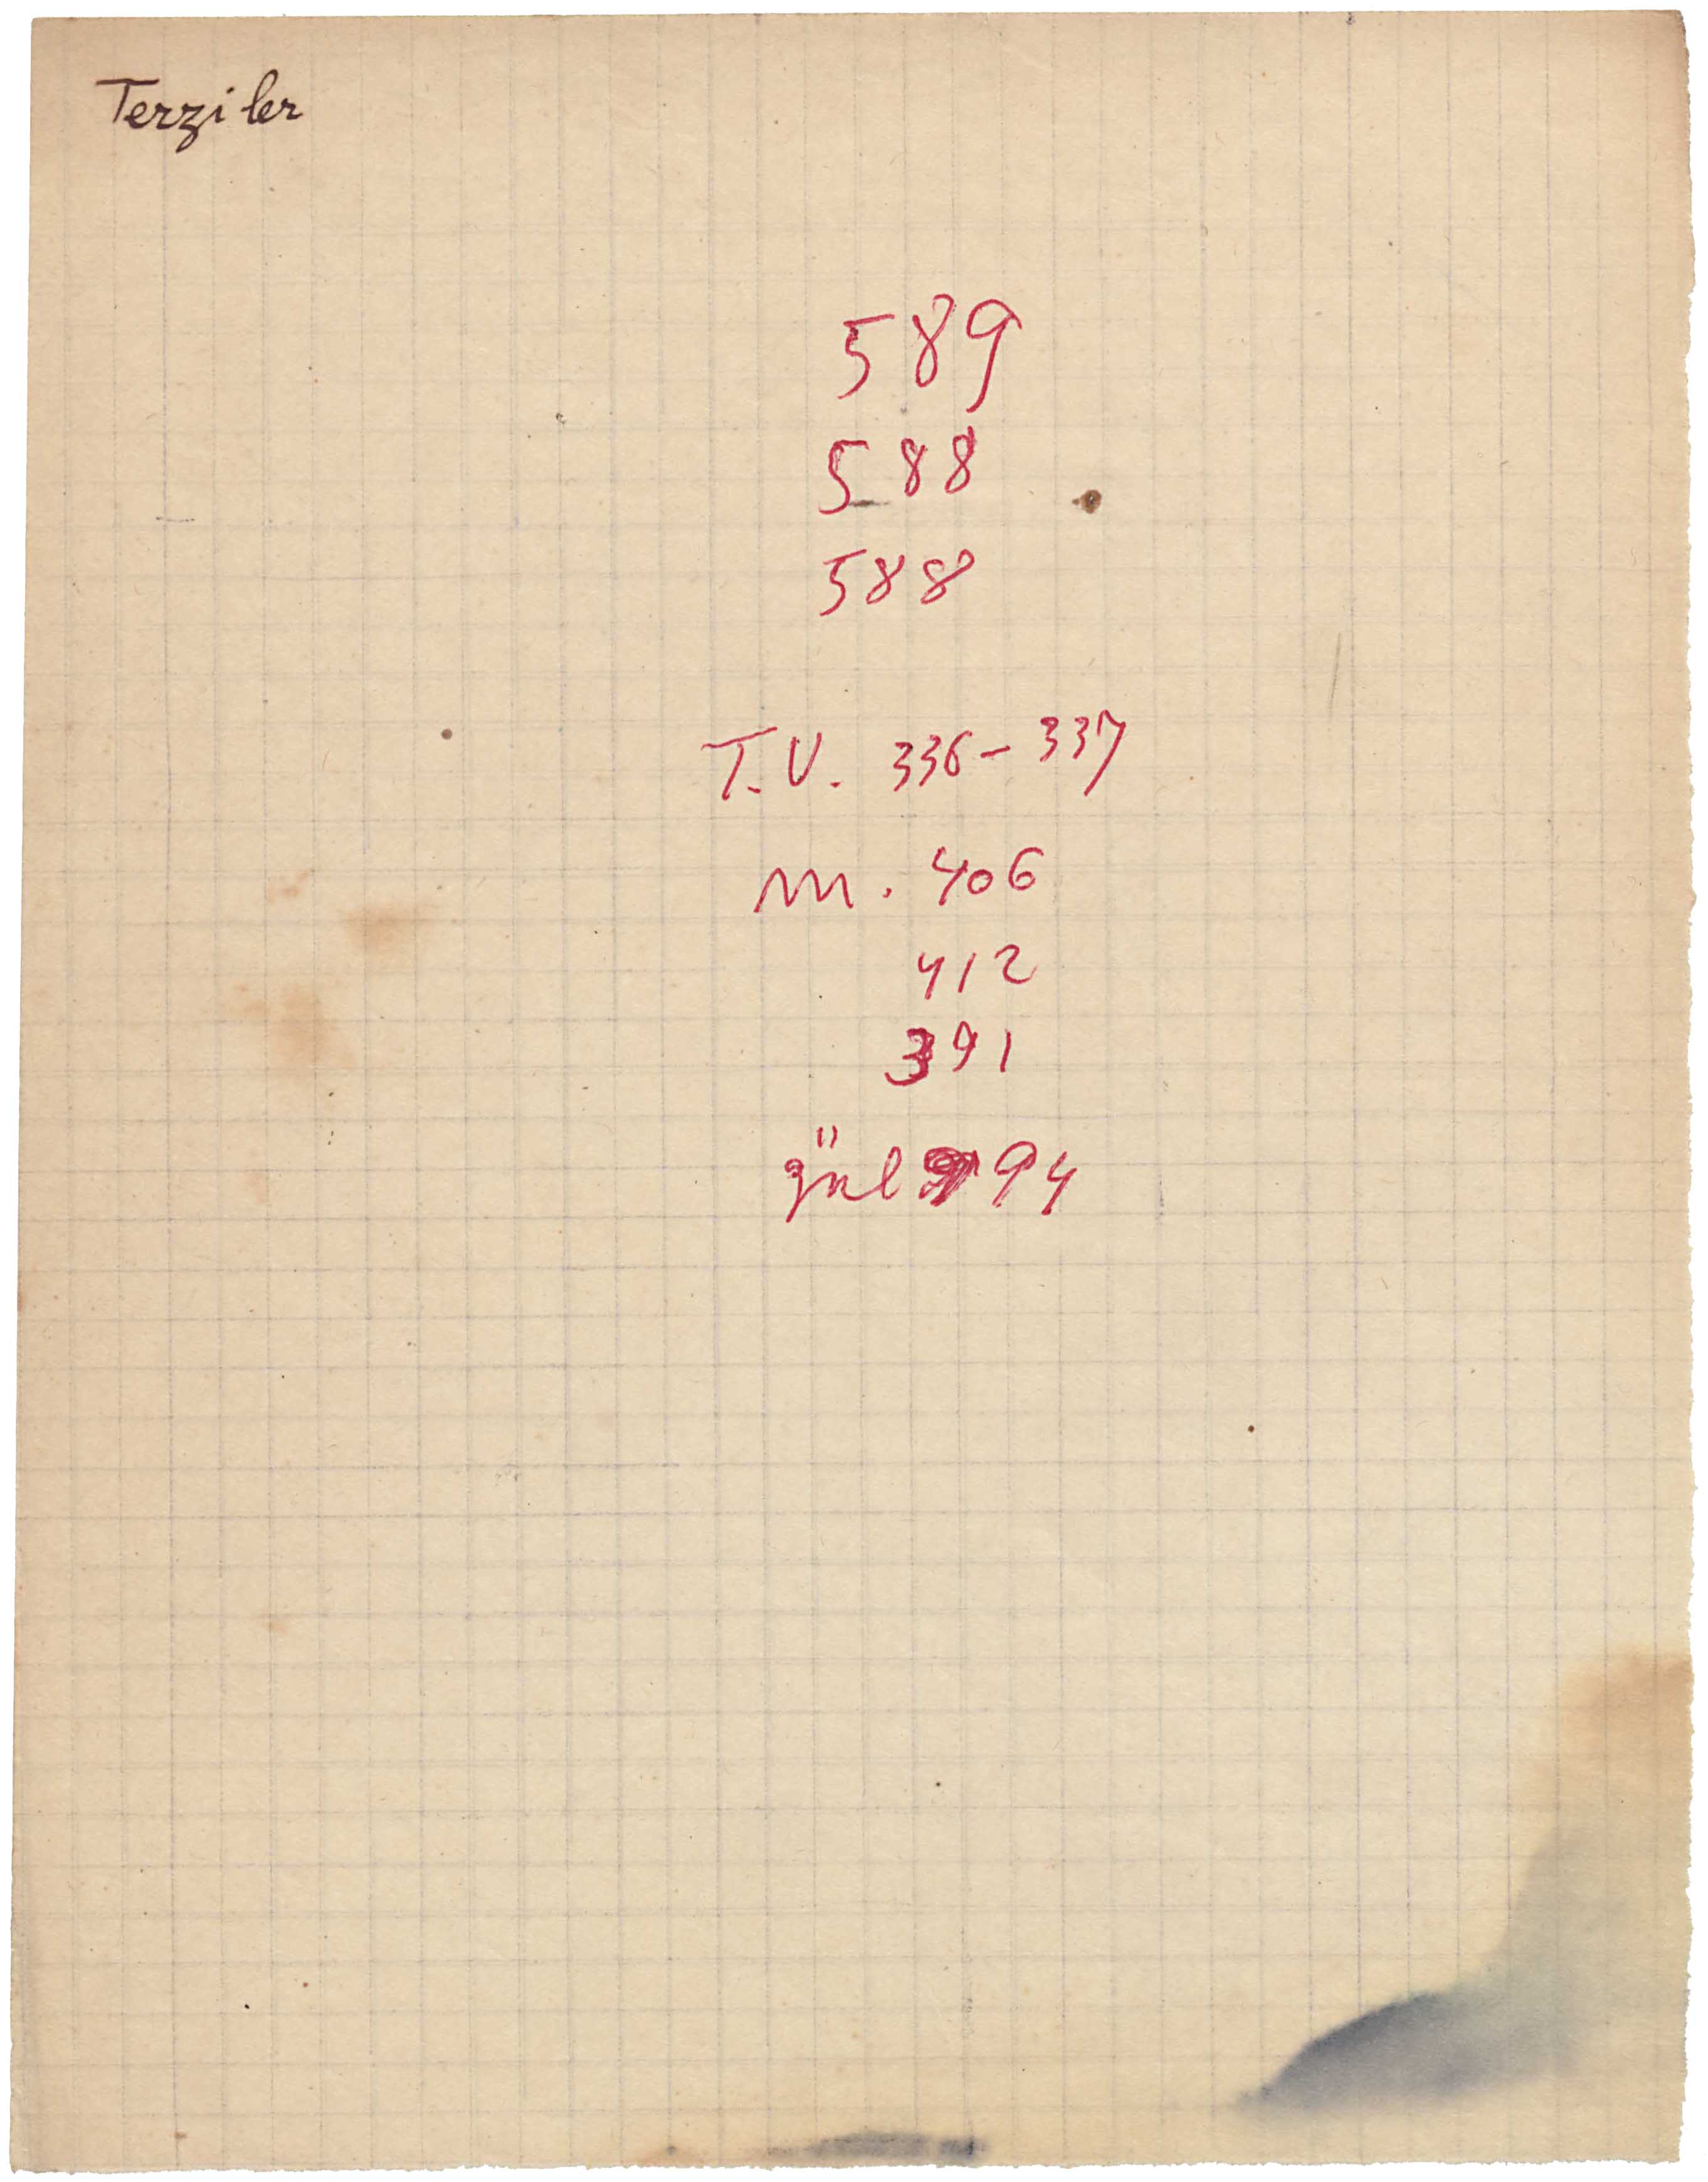 Terziler
589
588
588
T.V. 336-337
m. 406
412
391
gül 94